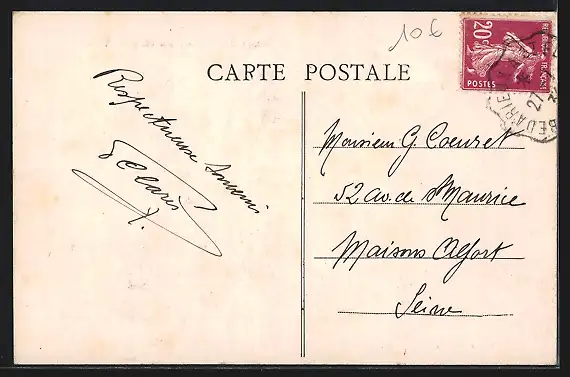 10€
20c
POSTES
REPUBLIQUE FRANÇAISE
BEDARIE
27
CARTE POSTALE
Respectueux Souvenir
Monsieur G. Coeuret
52 av. de St Maurice
Maisons Alfort
Seine